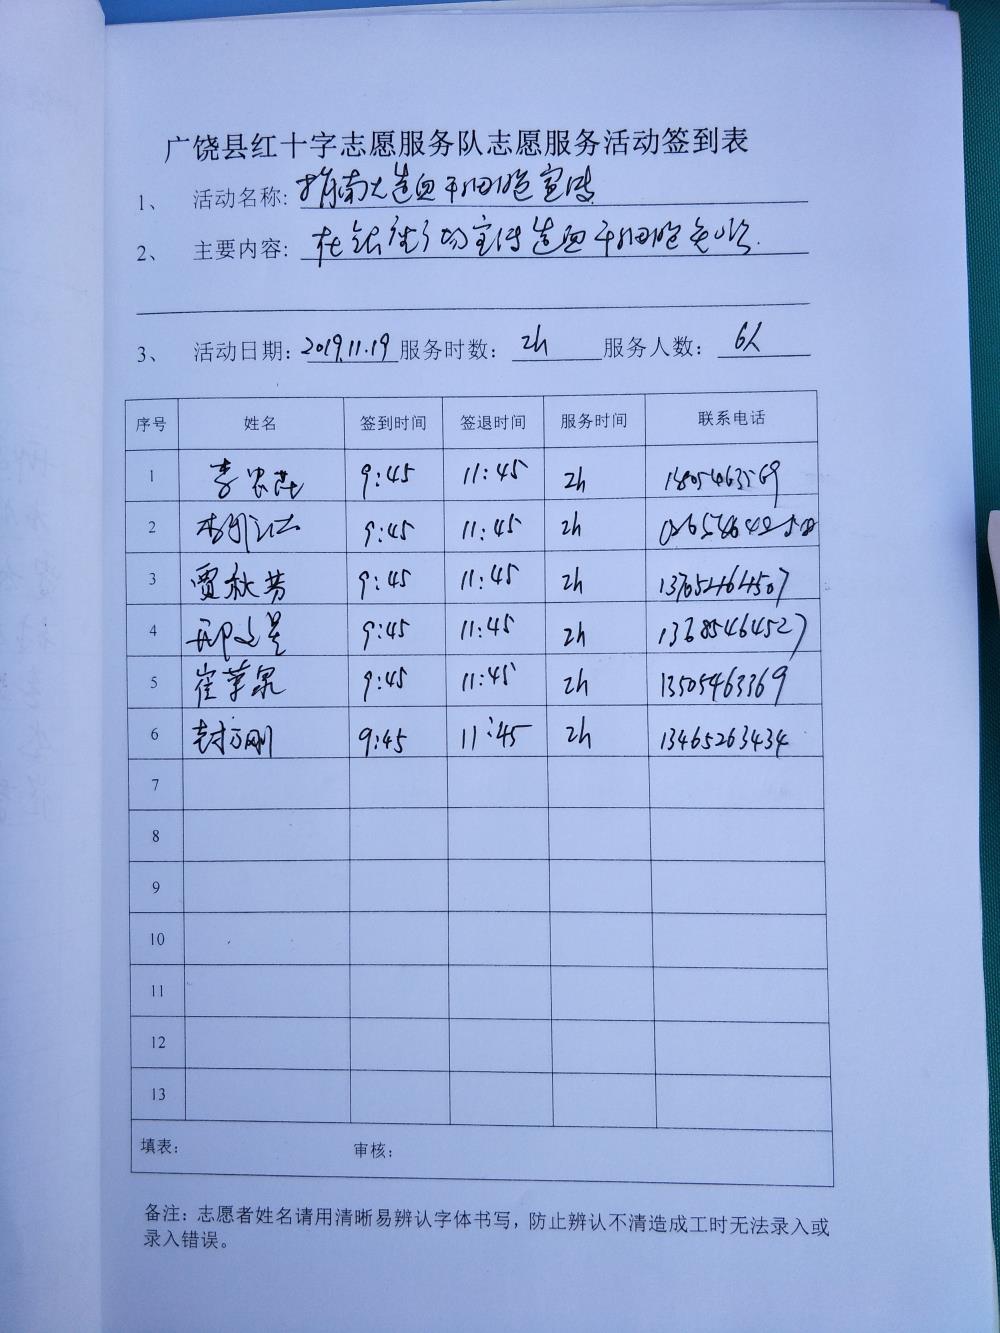 广饶县红十字志愿服务队志愿服务活动签到表
1、 活动名称: 造血干细胞宣传
2、 主要内容: 在 宣传造血干细胞
3、 活动日期: 2019.11.19 服务时数: 2h 服务人数: 6人
序号 姓名 签到时间 签退时间 服务时间 联系电话
1 李 9:45 11:45 2h
2 9:45 11:45 2h
3 贾秋芳 9:45 11:45 2h 13705464507
4 9:45 11:45 2h 13685464527
5 崔苹泉 9:45 11:45 2h 13505463369
6 封方刚 9:45 11:45 2h 13465263434
7
8
9
10
11
12
13
填表: 审核:
备注: 志愿者姓名请用清晰易辨认字体书写，防止辨认不清造成工时无法录入或
录入错误。